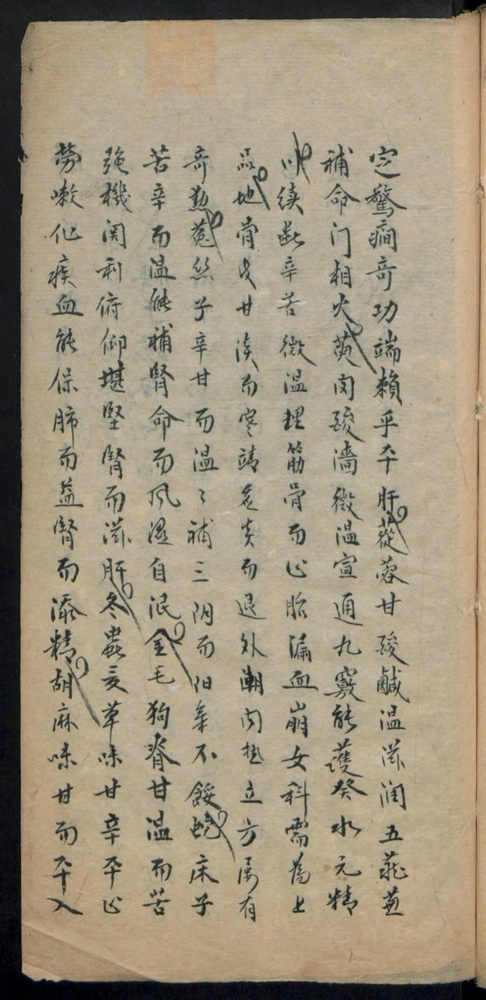 定驚癇奇功端賴乎平肝蓯蓉甘酸鹹温滋润五臟並
補命门相火萸肉酸濇微温宣通九竅能護癸水元精
川续断辛苦微温理筋骨而止胎漏血崩女科需為上
品地骨皮甘淡而寒靖炎而退外潮内热立方屡有
奇勲菟絲子辛甘而温々補三阴而阳氣不餒蛇床子
苦辛而温能補腎命而风濕自泯金毛狗脊甘温而苦
强機関利俯仰堪堅腎而滋肝冬蟲夏草味甘辛平止
勞嗽化痰血能保肺而益腎而添精胡麻味甘而平入